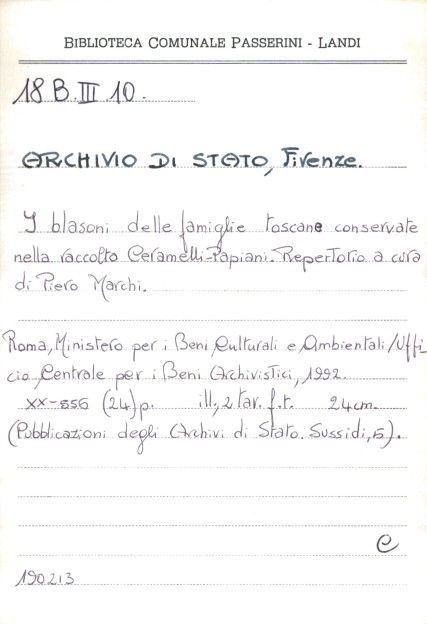 BIBLIOTECA COMUNALE PASSERINI - LANDI
18 B.III.10.
ARCHIVIO DI STATO, Firenze.
I blasoni delle famiglie toscane conservate
nella raccolta Ceramelli-Papiani. Repertorio a cura
di Piero Marchi.
Roma, Ministero per i Beni Culturali e Ambientali/Uffi
cio Centrale per i Beni Archivistici, 1992.
XX-556 (24)p. ill, 2 tav. f.t. 24cm.
(Pubblicazioni degli Archivi di Stato. Sussidi, 5).
e
190213